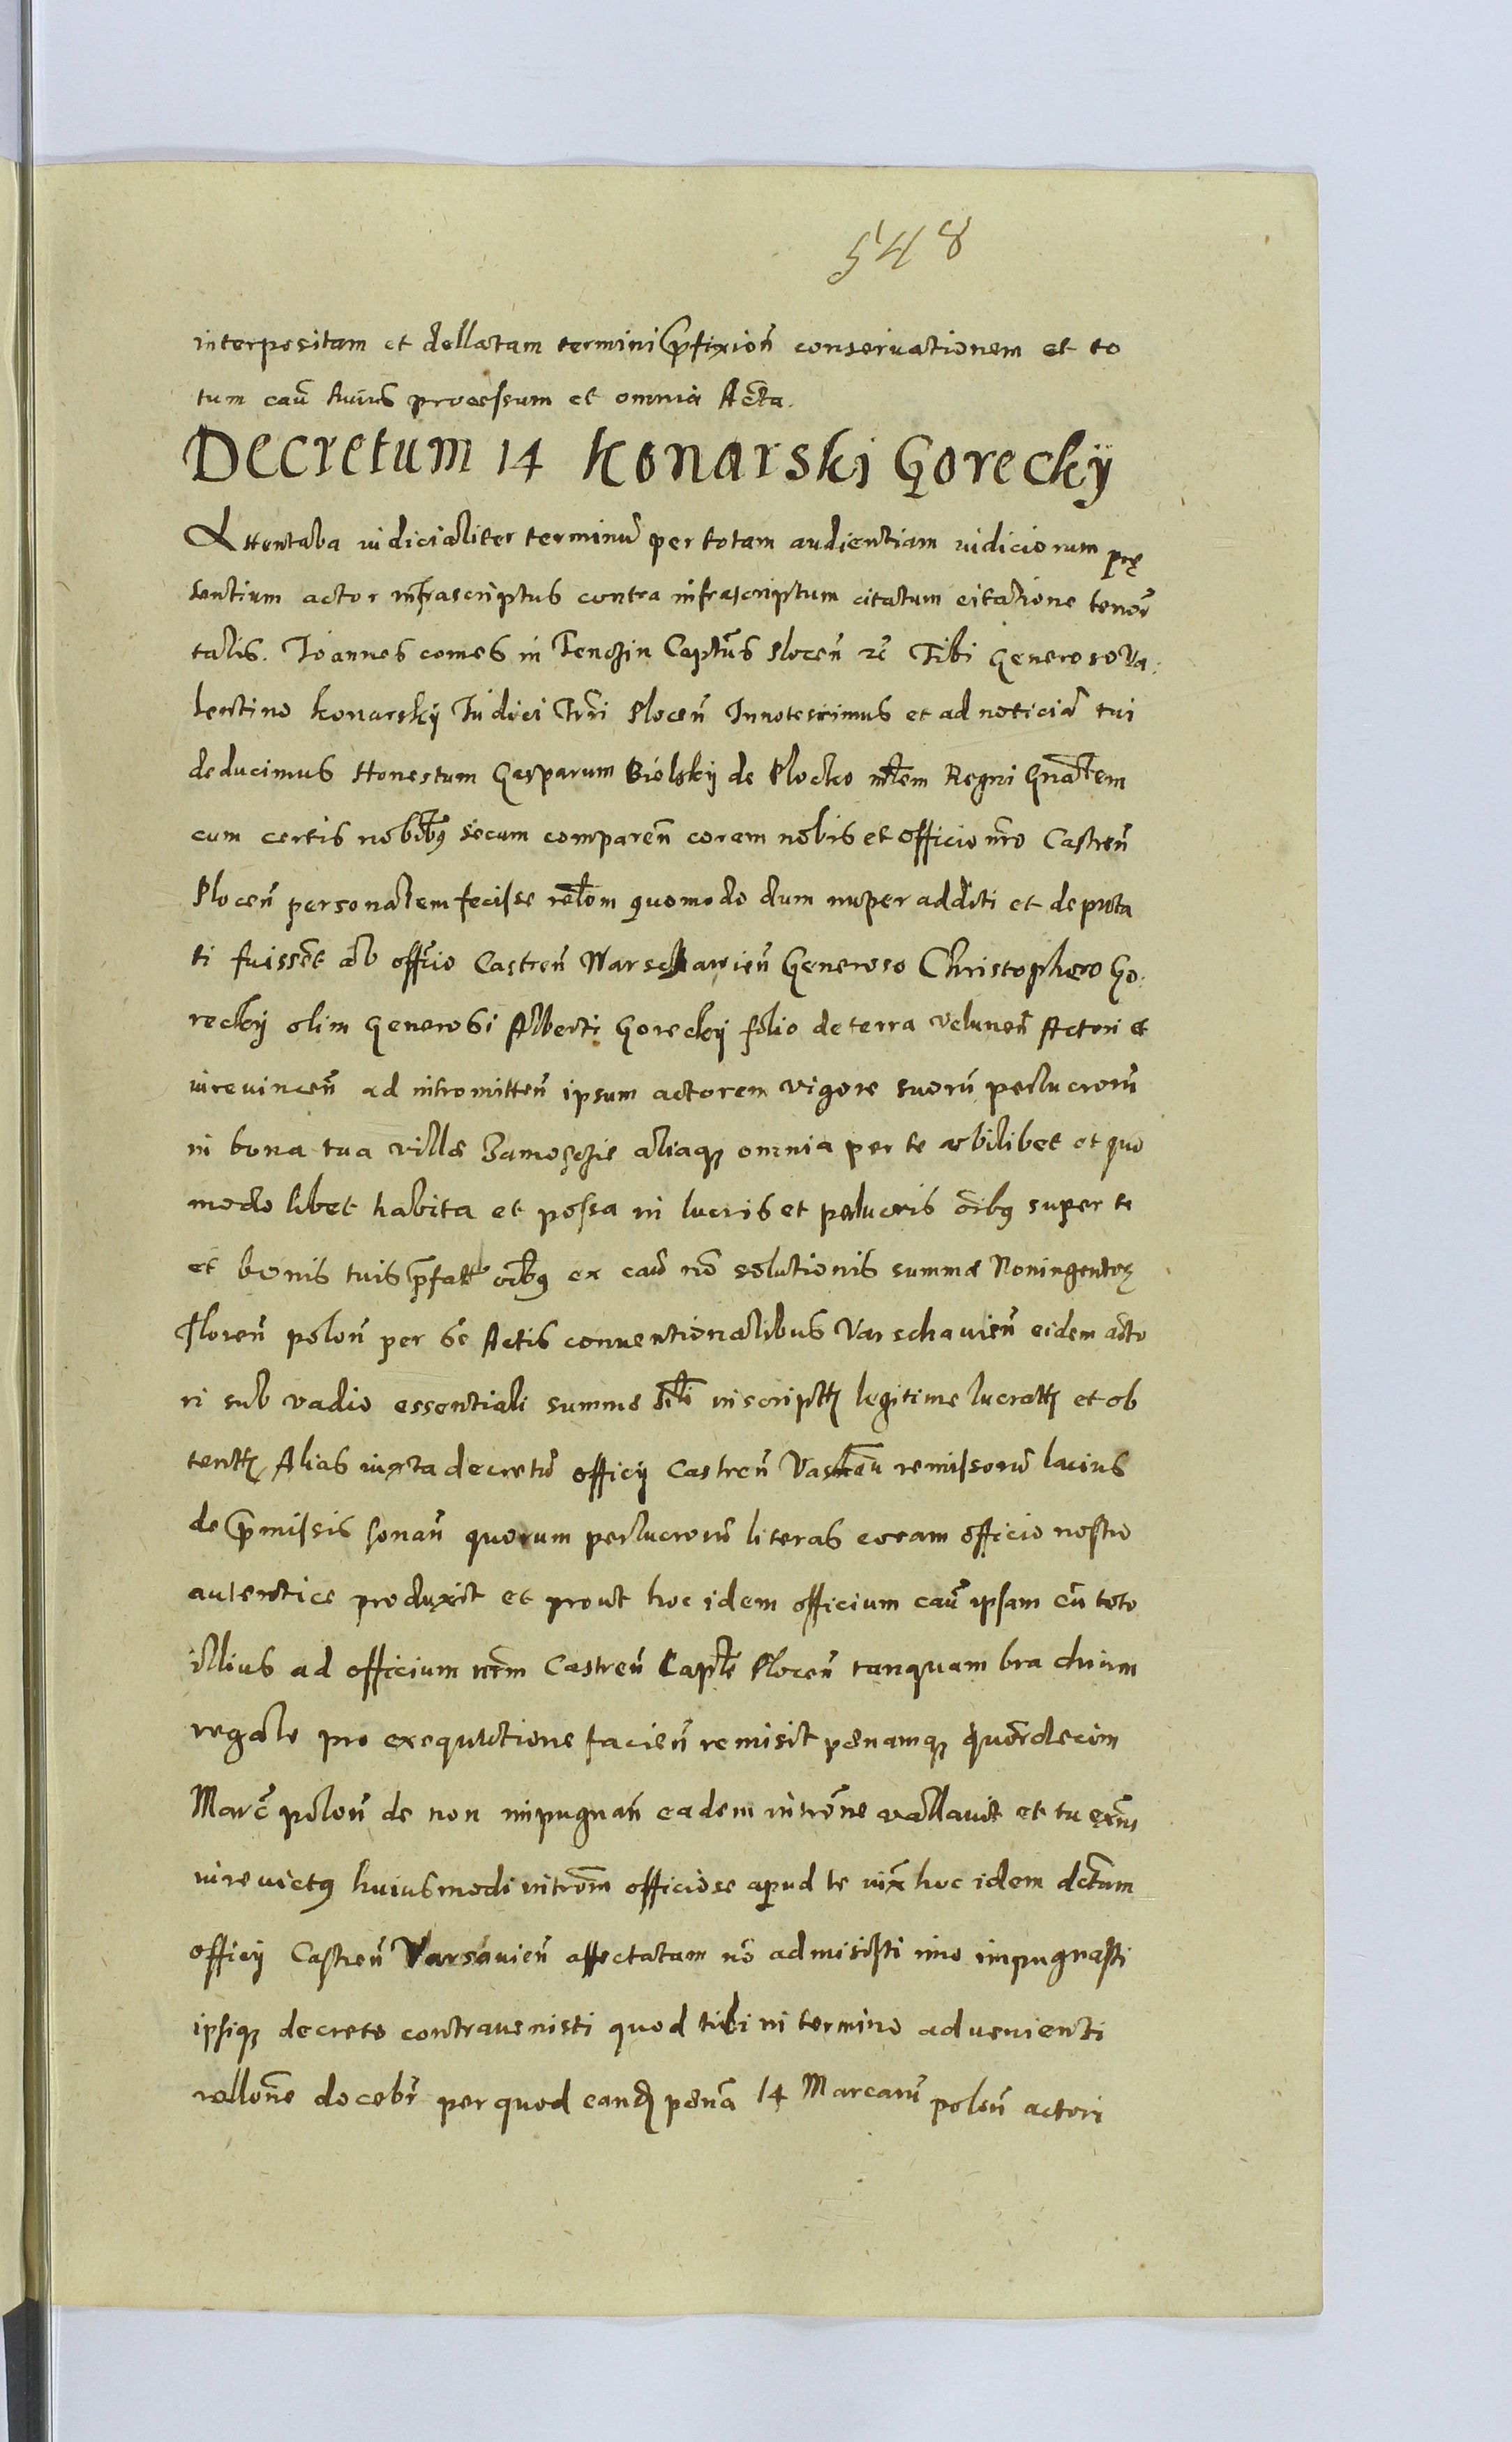 548
interpositam et dellatam termini p̄fixion̄ conseruationem et to
tum cau̅ huius processum et omnia Acta.
Decretum 14 Konarski Goreckÿ
Attentaba iudicialiter terminu̅ per totam audientiam iudiciorum prę
sentium actor infrascriptus contra infrascriptum citatum citatione tenor̄
talis. Ioannes comes in Tenczin Capt̄us Plocen̄ rc̄ Tibi Generoso Va:
lentino konarskÿ Iudici Trr̄i Plocen̄ Innotescimus et ad noticia̅ tui
deducimus Honestum Gasparum Biolskÿ de Plocko mr̄lem Regni Gn̄alem
cum certis nobilib9 secum comparen̄ coram nobis et officio nr̄o Castren̄
Plocen̄ personalem fecisse rel̄om quomodo dum nuper additi et deputa
ti fuissēt ab offīcio Castren̄ Warschawien̄ Generoso Christophoro Go:
reckÿ olim Generosi Alberti Goreckÿ filio de terra Velunen̄ Actori et
iureuincen̄ ad intromitten̄ ipsum actorem vigore suoru̅ perlucroru̅
in bona tua villa Zamosczie aliaqꝫ omnia per te vbilibet et quo
modo libet habita et possa in lucris et perlucris oīb9 super te
et bonis tuis p̄fat̄ oīb9 ex cau̅ no̅ solutionis summæ Noningentoꝝ
Floren̄ polon̄ per te Actis conuentionalibus Varschauien̄ eidem acto
ri sub vadio essentiali summe sīli inscriptꝝ legitime lucratꝝ et ob
tentꝝ Alias iuxta decretu̅ officÿ Castren̄ Vasscheu̅ remissoru̅ lacius
de p̄missis sonan̄ quorum perlucroru̅ literas coram officio nostro
autentice produxit et prout hoc idem officium cau̅ ipsam cu̅ toto
illius ad officium nr̄m Castren̄ Capt̄le Plocen̄ tanquam brachium
regale pro exequutione facien̄ remisit penamqꝫ quor̄decim
Marc̄ polon̄ de non impugnan̄ eadem intro̅ne vallauit et tu exn̄s
iureuict9 huiusmodi intro̅m officiose apud te iux̄ hoc idem dct̄am
officÿ Castren̄ Varsauien̄ affectatam no̅ admisisti imo impugnasti
ipsiqꝫ decreto contrauenisti quod tibi in termino aduenienti
rello̅ne docebr̄ per quod eandꝫ pena̅ 14 Marcaru̅ polon̄ actori